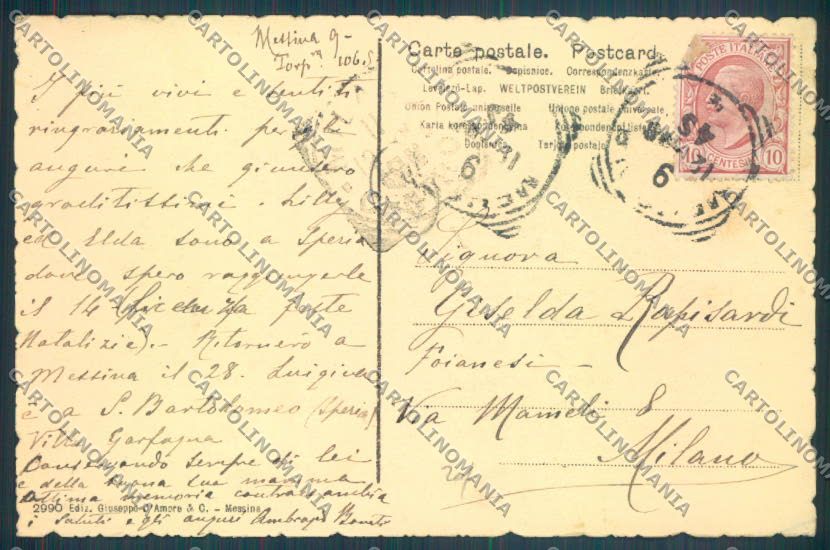 Messina 9-
Torpa 106.S
Carte postale. Postcard
Cartolina postale. Dopisnice. Correspondenzkarte.
Levelező-Lap. WELTPOSTVEREIN Briefkaart.
Union Postale universelle Unione postale universale
Karta korespondencyjna Korespondenční lístek
Tarjeta postal
POSTE ITALIANE
10 CENTESIMI 10
I più vivi e sentiti
ringraziamenti per gli
auguri che giunsero
graditissimi. Lilly
ed Elda sono a Spezia
dove spero raggiungerle
il 14 (licenza feste
Natalizie).- Ritornerò a
Messina il 28. Luigina
è a S. Bartolomeo (Spezia)
Villa Garfagna
Conservando sempre di lei
e della buona sua mamma
ottima memoria contraccambia
i saluti e gli auguri
Signora
Giselda Rapisardi
Foianesi -
Via Mameli 8
Milano
2990 Ediz. Giuseppe D'Amore & C. - Messina
CARTOLINOMANIA